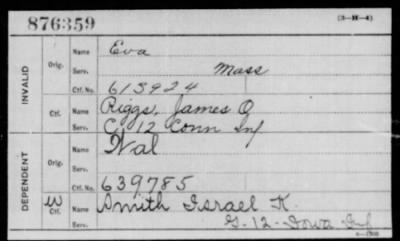 876359
(3—H—4)
INVALID
Orig.
Name
Eva
Serv.
Mass
Ctf. No.
613924
Ctf.
Name
Riggs, James O
Serv.
C, 12 Conn Inf
DEPENDENT
Orig.
Name
Val
Serv.
Ctf. No.
639785
W
Ctf.
Name
Smith Israel K.
Serv.
G-12-Iowa Inf